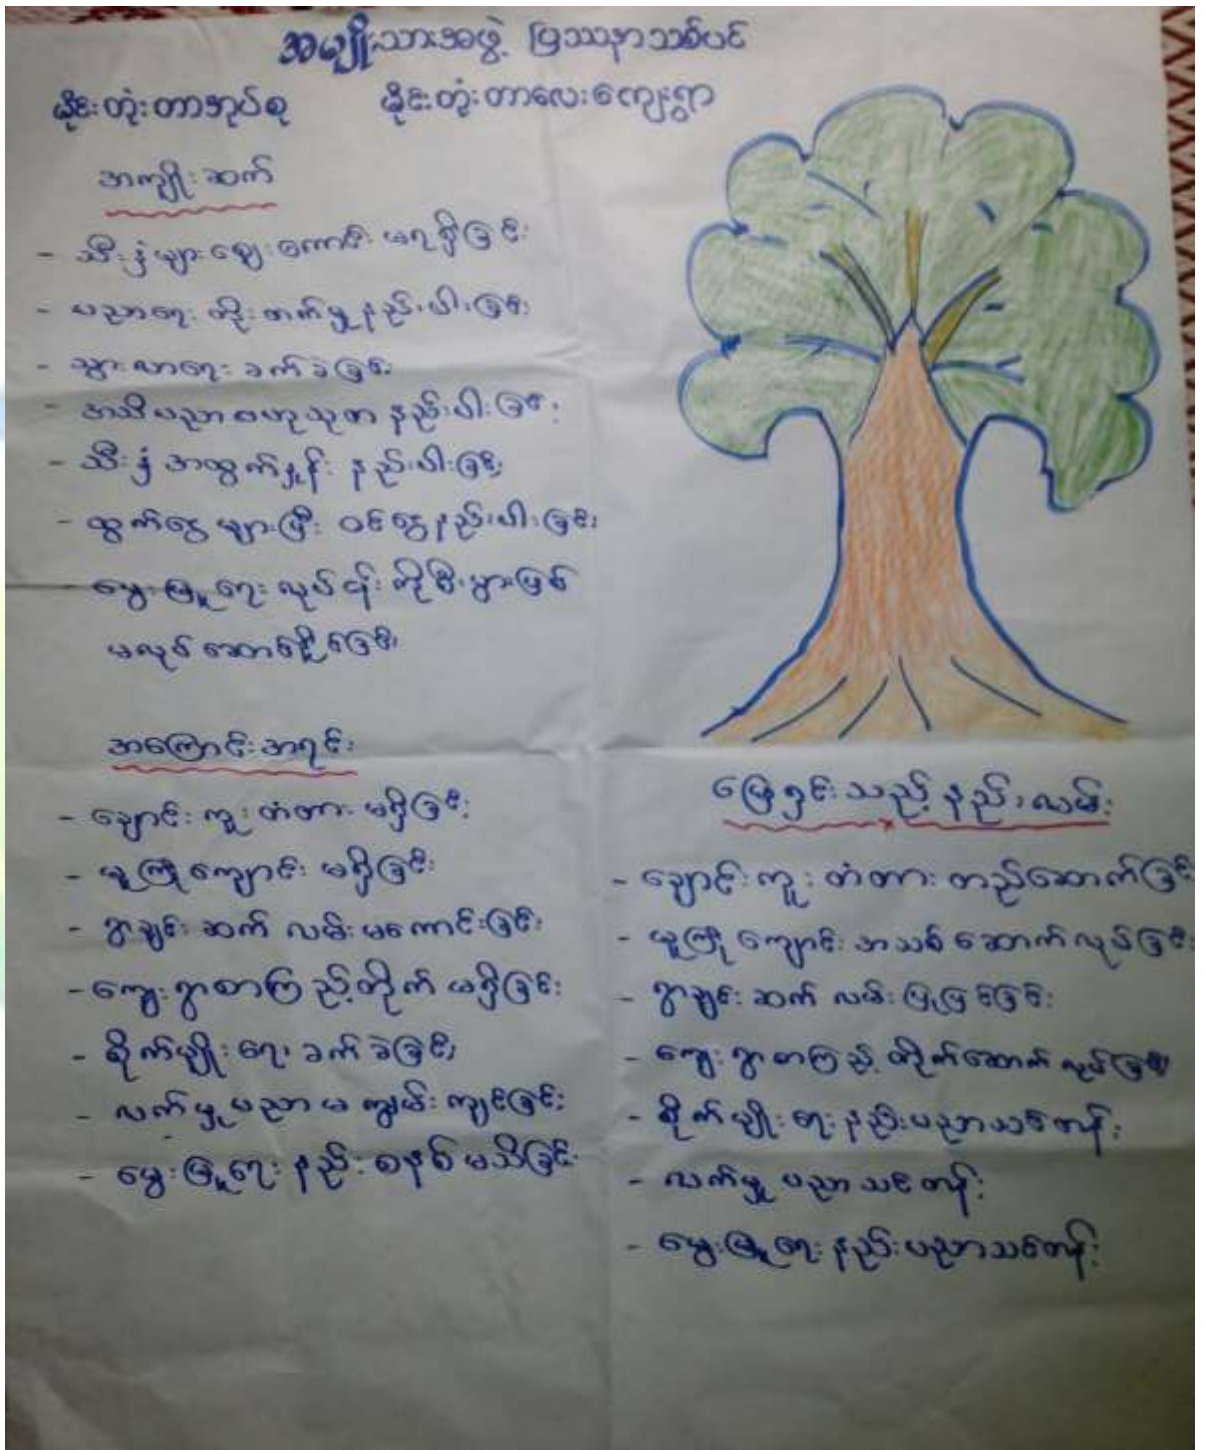 အမျိုးသားအဖွဲ့ ပြဿနာသစ်ပင်
မိုင်းတုံးတာအုပ်စု မိုင်းတုံးတာလေးကျေးရွာ
အကျိုးဆက်
- သီးနှံများဈေးကောင်း မရရှိခြင်း
- ပညာရေး တိုးတက်မှုနည်းပါးခြင်း
- သွားလာရေး ခက်ခဲခြင်း
- အသိပညာ ဗဟုသုတ နည်းပါးခြင်း
- သီးနှံ အထွက်နှုန်း နည်းပါးခြင်း
- ထွက်ငွေများပြီး ဝင်ငွေနည်းပါးခြင်း
- မွေးမြူရေး လုပ်ငန်း ကိုစီးပွားဖြစ်
မလုပ်ဆောင်နိုင်ခြင်း
အကြောင်းအရင်း
- ချောင်းကူး တံတား မရှိခြင်း
- မူကြိုကျောင်း မရှိခြင်း
- ရွာချင်းဆက် လမ်းမကောင်းခြင်း
- ကျေးရွာစာကြည့်တိုက် မရှိခြင်း
- စိုက်ပျိုးရေး ခက်ခဲခြင်း
- လက်မှုပညာ မကျွမ်းကျင်ခြင်း
- မွေးမြူရေး နည်းစနစ် မသိခြင်း
ဖြေရှင်းသည့် နည်းလမ်း
- ချောင်းကူး တံတား တည်ဆောက်ခြင်း
- မူကြိုကျောင်း အသစ် ဆောက်လုပ်ခြင်း
- ရွာချင်းဆက် လမ်းပြုပြင်ခြင်း
- ကျေးရွာစာကြည့် တိုက်ဆောက်လုပ်ခြင်း
- စိုက်ပျိုးရေး နည်းပညာသင်တန်း
- လက်မှု ပညာ သင်တန်း
- မွေးမြူရေး နည်းပညာသင်တန်း